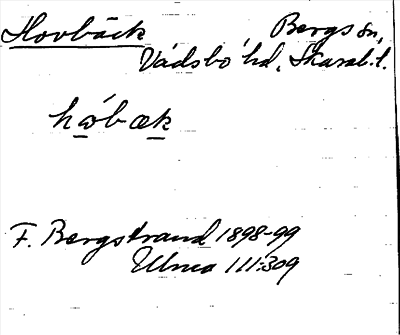 Hovbäck Bergs sn,
Vadsbo hd, Skarab.l.
hóbæk
F. Bergstrand 1898-99
Ulma 111:309